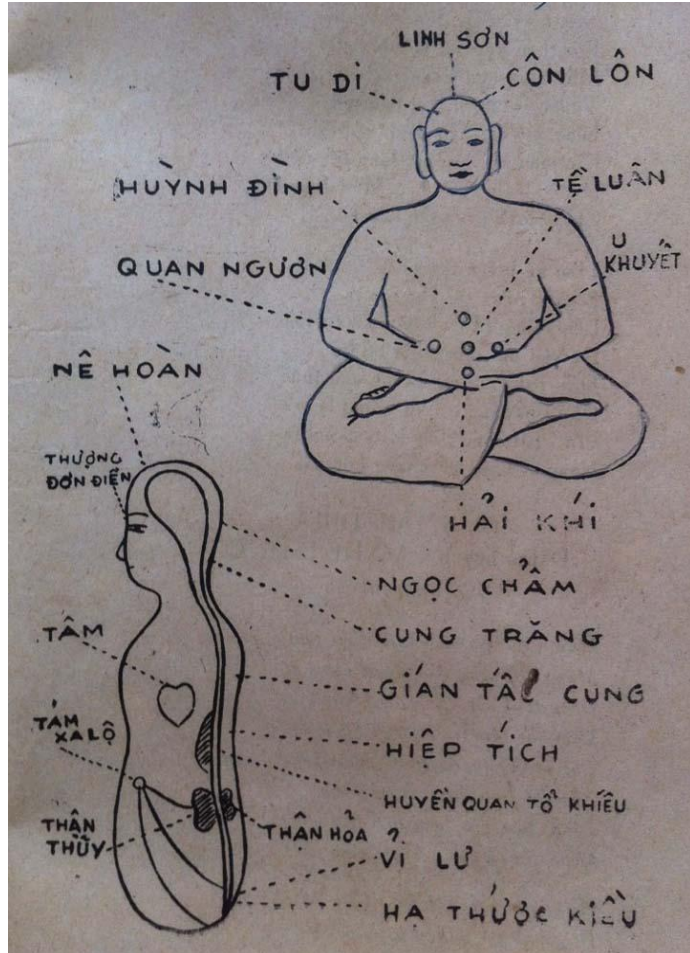 LINH SƠN
TU DI
CÔN LÔN
HUỲNH ĐÌNH
TỀ LUÂN
QUAN NGƯƠN
U
KHUYẾT
NÊ HOÀN
THƯỢNG
ĐƠN ĐIỀN
HẢI KHÍ
NGỌC CHẨM
CUNG TRĂNG
TÂM
GIÁN TẤC CUNG
TÁM
XA LỘ
HIỆP TÍCH
HUYỀN QUAN TỔ KHIẾU
THẬN
THỦY
THẬN HỎA
VỈ LƯ
HẠ THƯỢC KIỀU